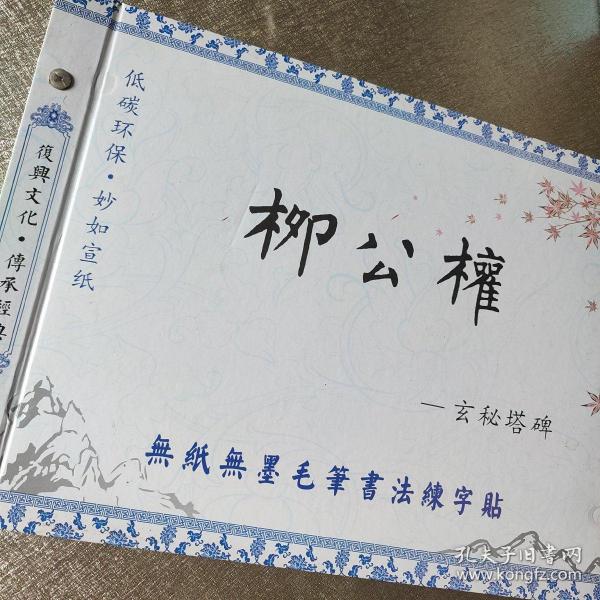 復興文化·傳承經典
低碳环保·妙如宣纸
柳公權
—玄秘塔碑
無紙無墨毛筆書法練字貼
孔夫子旧书网
www.kongfz.com